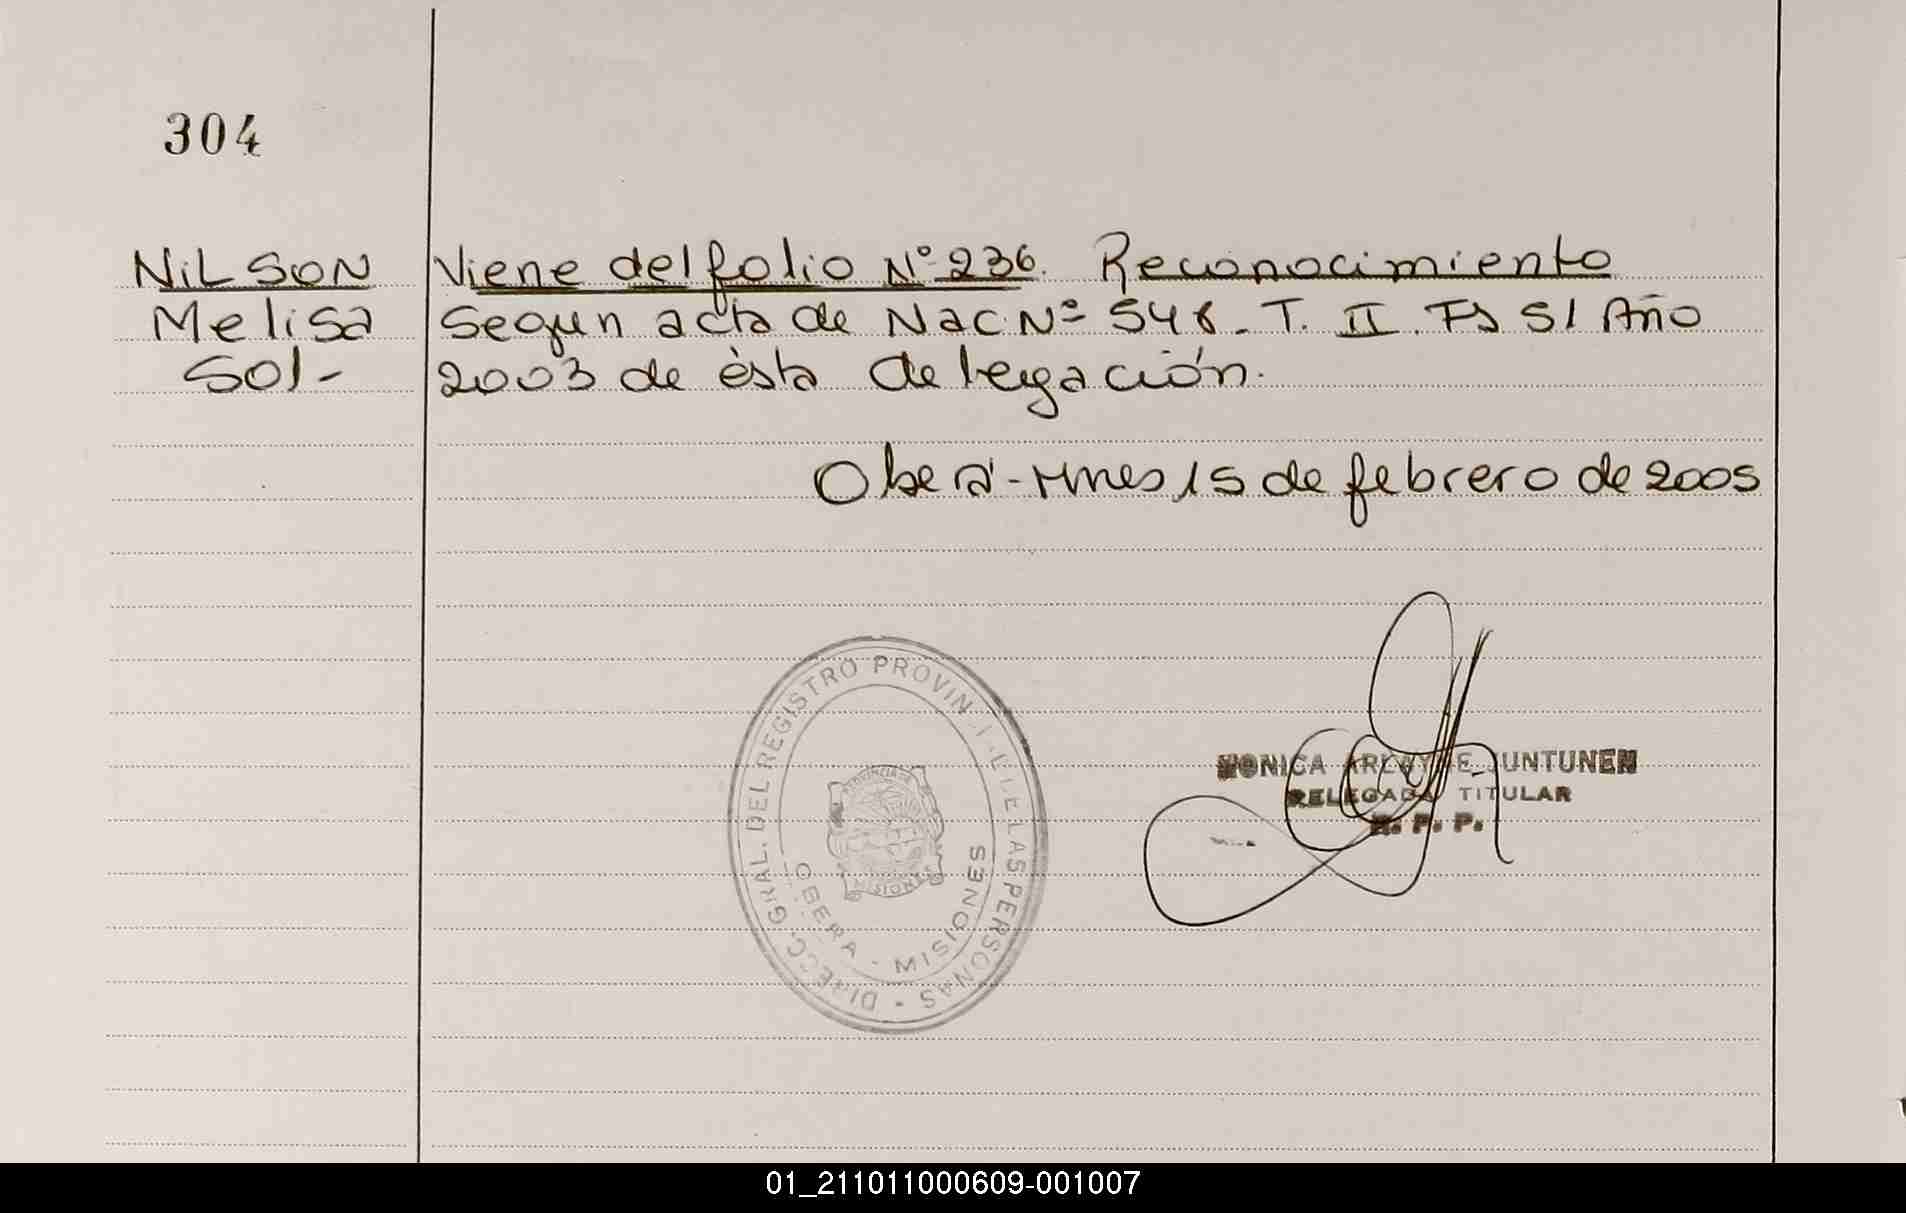 304
NiLSON
Melisa
Sol-
Viene del folio Nº 236. Reconocimiento
Segun acta de Nac Nº 548. T. II. Fs 51 Año
2003 de èsta delegación.
Oberá-Mnes 15 de febrero de 2005
DIRECC. GRAL. DEL REGISTRO PROVINCIAL DE LAS PERSONAS -
PROVINCIA DE
MISIONES
OBERA - MISIONES
MONICA ARLAYNE JUNTUNEN
DELEGADA TITULAR
R. P. P.
01_211011000609-001007